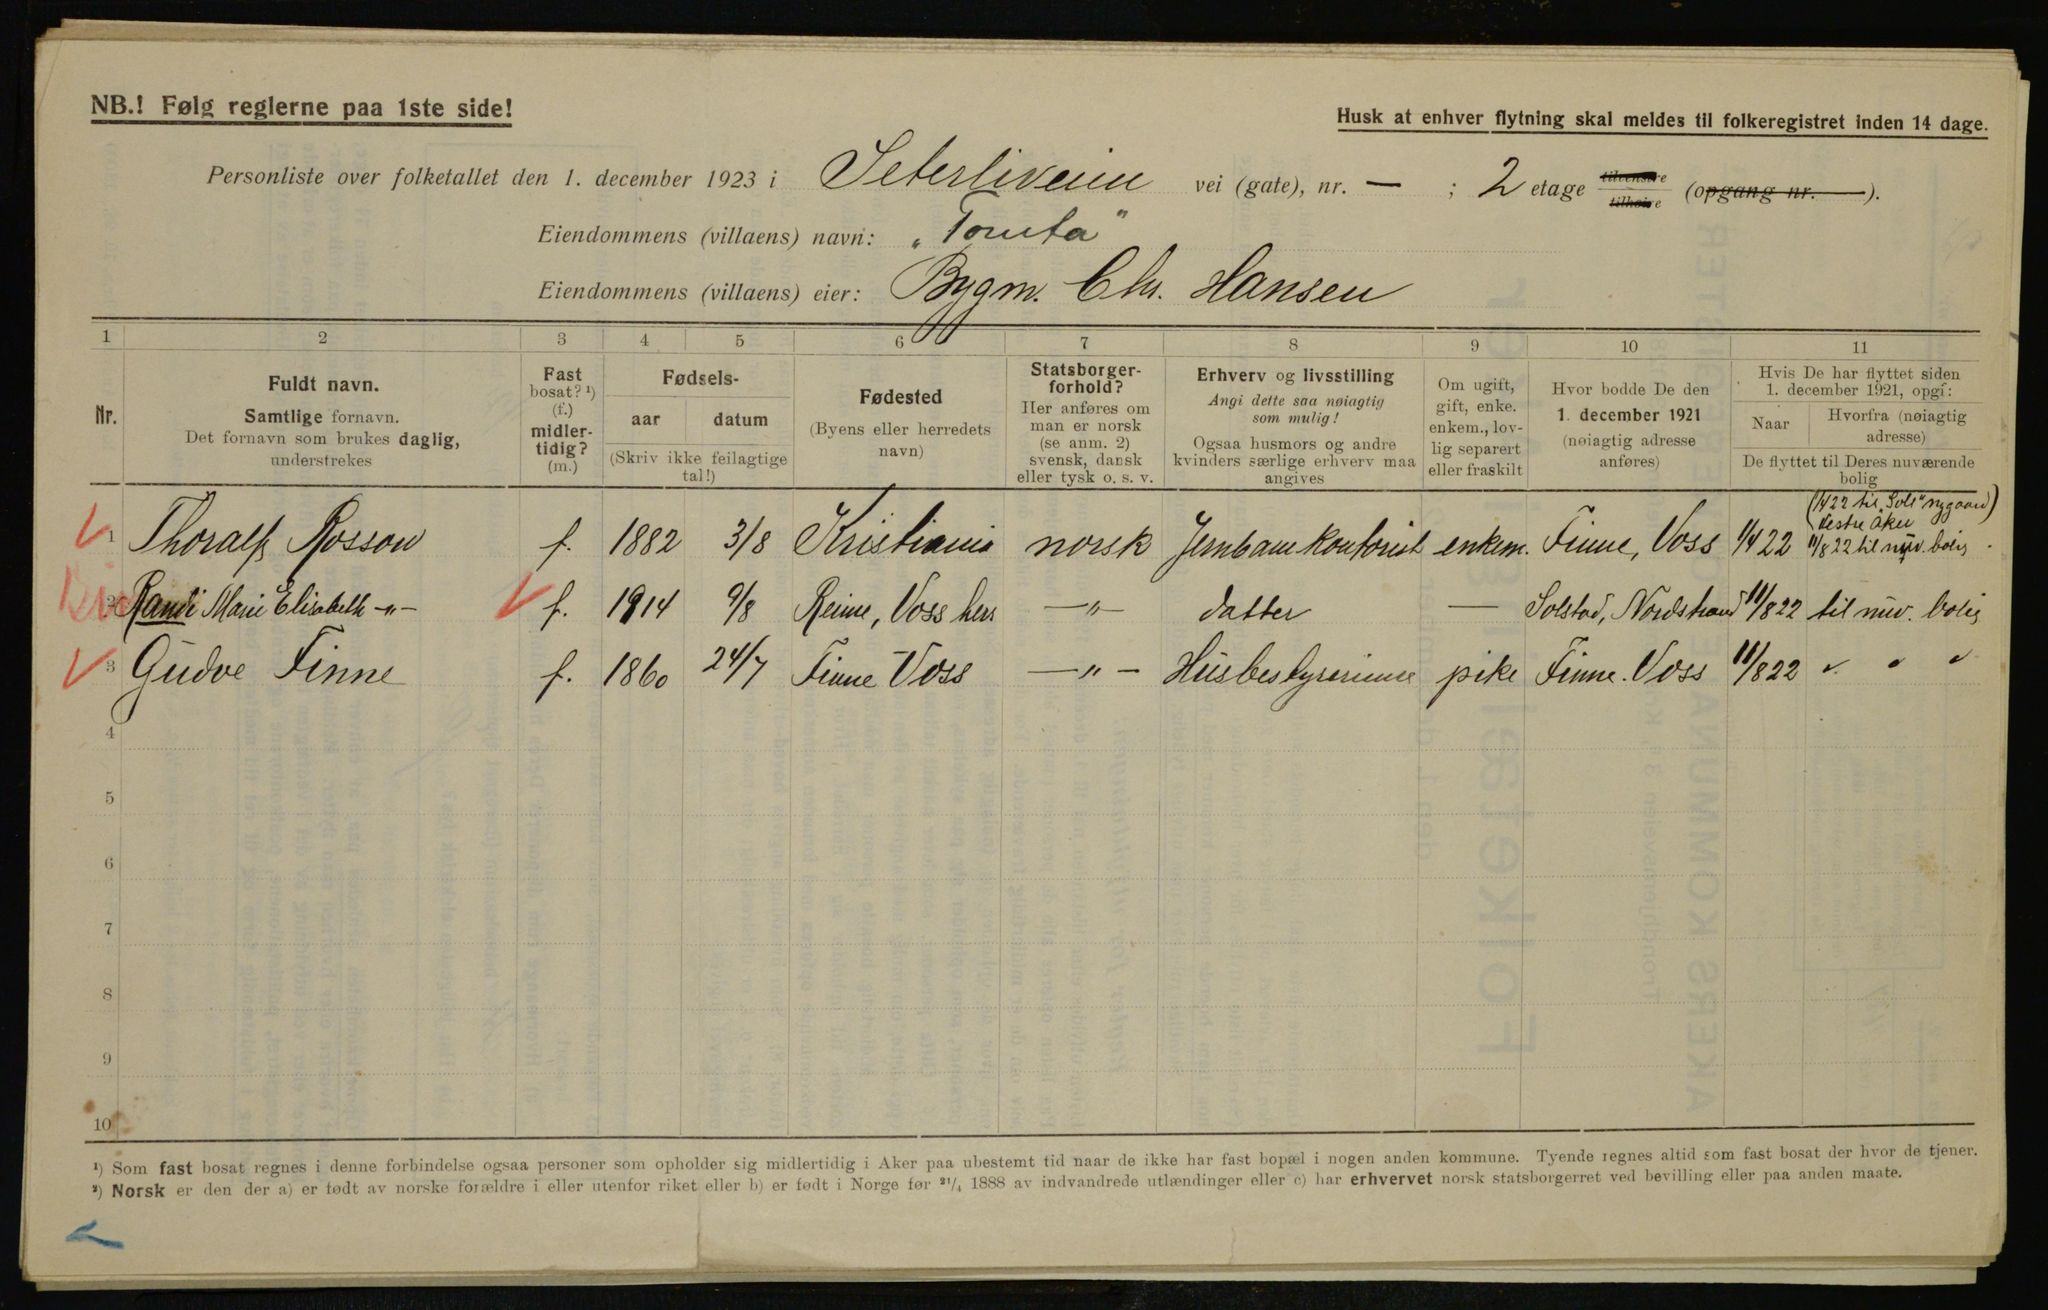 NB.! Følg reglerne paa 1ste side!
Husk at enhver flytning skal meldes til folkeregistret inden 14 dage.
Personliste over folketallet den 1. december 1923 i Seterliveien vei (gate), nr. — ; 2 etage tilvenstre tilhøire (opgang nr. —).
Eiendommens (villaens) navn: „Tomta"
Eiendommens (villaens) eier: Bygm. Chr. Hansen
1 2 3 4 5 6 7 8 9 10 11
Nr.
Fuldt navn.
Samtlige fornavn.
Det fornavn som brukes daglig,
understrekes
Fast
bosat? ¹)
(f.)
midler-
tidig?
(m.)
Fødsels-
aar datum
(Skriv ikke feilagtige
tal!)
Fødested
(Byens eller herredets
navn)
Statsborger-
forhold?
Her anføres om
man er norsk
(se anm. 2)
svensk, dansk
eller tysk o. s. v.
Erhverv og livsstilling
Angi dette saa nøiagtig
som mulig!
Ogsaa husmors og andre
kvinders særlige erhverv maa
angives
Om ugift,
gift, enke.
enkem., lov-
lig separert
eller fraskilt
Hvor bodde De den
1. december 1921
(nøiagtig adresse
anføres)
Hvis De har flyttet siden
1. december 1921, opgi:
Naar Hvorfra (nøiagtig
adresse)
De flyttet til Deres nuværende
bolig
(1/4 22 til „Soli" nygaard)
Vestre Aker
1 Thoralf Rosson f. 1882 3/8 Kristiania norsk Jernbanekontorist enkem. Finne, Voss 1/4 22 11/8 22 til nuv. bolig.
2 Randi Marie Elisabeth -„- f. 1914 9/8 Reime, Voss herr —„— datter — Solstad, Nordstrand 11/8 22 til nuv. bolig
3 Gudve Finne f. 1860 24/7 Finne Voss —„— Husbestyrerinne pike Finne. Voss 11/8 22 „ „ „
4
5
6
7
8
9
10
¹) Som fast bosat regnes i denne forbindelse ogsaa personer som opholder sig midlertidig i Aker paa ubestemt tid naar de ikke har fast bopæl i nogen anden kommune. Tyende regnes altid som fast bosat der hvor de tjener.
²) Norsk er den der a) er født av norske forældre i eller utenfor riket eller b) er født i Norge før ²¹/₄ 1888 av indvandrede utlændinger eller c) har erhvervet norsk statsborgerret ved bevilling eller paa anden maate.